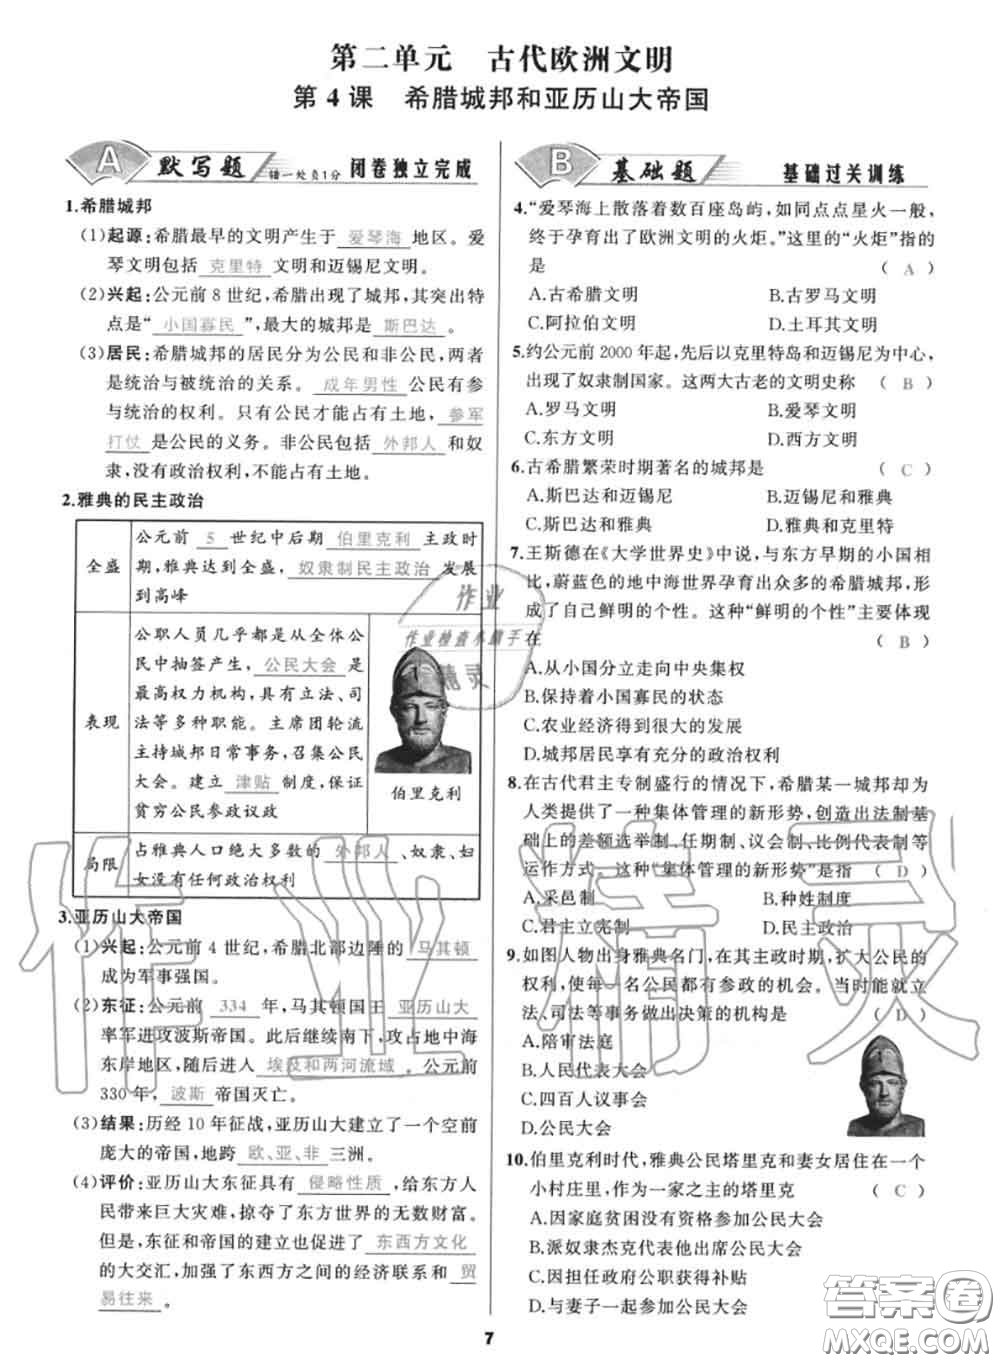 第二单元 古代欧洲文明
第 4 课 希腊城邦和亚历山大帝国
A 默写题 错一处负1分 闭卷独立完成
1.希腊城邦
(1)起源:希腊最早的文明产生于 爱琴海 地区。爱
琴文明包括 克里特 文明和迈锡尼文明。
(2)兴起:公元前 8 世纪,希腊出现了城邦,其突出特
点是“ 小国寡民 ”,最大的城邦是 斯巴达 。
(3)居民:希腊城邦的居民分为公民和非公民,两者
是统治与被统治的关系。 成年男性 公民有参
与统治的权利。只有公民才能占有土地, 参军
打仗 是公民的义务。非公民包括 外邦人 和奴
隶,没有政治权利,不能占有土地。
2.雅典的民主政治
全盛
公元前 5 世纪中后期 伯里克利 主政时
期,雅典达到全盛, 奴隶制民主政治 发展
到高峰
表现
公职人员几乎都是从全体公
民中抽签产生, 公民大会 是
最高权力机构,具有立法、司
法等多种职能。主席团轮流
主持城邦日常事务,召集公民
大会。建立 津贴 制度,保证
贫穷公民参政议政
伯里克利
局限
占雅典人口绝大多数的 外邦人 、奴隶、妇
女没有任何政治权利
3.亚历山大帝国
(1)兴起:公元前 4 世纪,希腊北部边陲的 马其顿
成为军事强国。
(2)东征:公元前 334 年,马其顿国王 亚历山大
率军进攻波斯帝国。此后继续南下,攻占地中海
东岸地区,随后进入 埃及和两河流域 。公元前
330 年, 波斯 帝国灭亡。
(3)结果:历经 10 年征战,亚历山大建立了一个空前
庞大的帝国,地跨 欧、亚、非 三洲。
(4)评价:亚历山大东征具有 侵略性质 ,给东方人
民带来巨大灾难,掠夺了东方世界的无数财富。
但是,东征和帝国的建立也促进了 东西方文化
的大交汇,加强了东西方之间的经济联系和 贸
易往来 。
B 基础题 基础过关训练
4.“爱琴海上散落着数百座岛屿,如同点点星火一般,
终于孕育出了欧洲文明的火炬。”这里的“火炬”指的
是 ( A )
A.古希腊文明 B.古罗马文明
C.阿拉伯文明 D.土耳其文明
5.约公元前 2000 年起,先后以克里特岛和迈锡尼为中心,
出现了奴隶制国家。这两大古老的文明史称 ( B )
A.罗马文明 B.爱琴文明
C.东方文明 D.西方文明
6.古希腊繁荣时期著名的城邦是 ( C )
A.斯巴达和迈锡尼 B.迈锡尼和雅典
C.斯巴达和雅典 D.雅典和克里特
7.王斯德在《大学世界史》中说,与东方早期的小国相
比,蔚蓝色的地中海世界孕育出众多的希腊城邦,形
成了自己鲜明的个性。这种“鲜明的个性”主要体现
在 ( B )
A.从小国分立走向中央集权
B.保持着小国寡民的状态
C.农业经济得到很大的发展
D.城邦居民享有充分的政治权利
8.在古代君主专制盛行的情况下,希腊某一城邦却为
人类提供了一种集体管理的新形势,创造出法制基
础上的差额选举制、任期制、议会制、比例代表制等
运作方式。这种“集体管理的新形势”是指 ( D )
A.采邑制 B.种姓制度
C.君主立宪制 D.民主政治
9.如图人物出身雅典名门,在其主政时期,扩大公民的
权利,使每一名公民都有参政的机会。当时能就立
法、司法等事务做出决策的机构是 ( D )
A.陪审法庭
B.人民代表大会
C.四百人议事会
D.公民大会
10.伯里克利时代,雅典公民塔里克和妻女居住在一个
小村庄里,作为一家之主的塔里克 ( C )
A.因家庭贫困没有资格参加公民大会
B.派奴隶杰克代表他出席公民大会
C.因担任政府公职获得补贴
D.与妻子一起参加公民大会
7
作业
作业检查小助手
精灵
作业精灵
答案圈
MXQE.COM